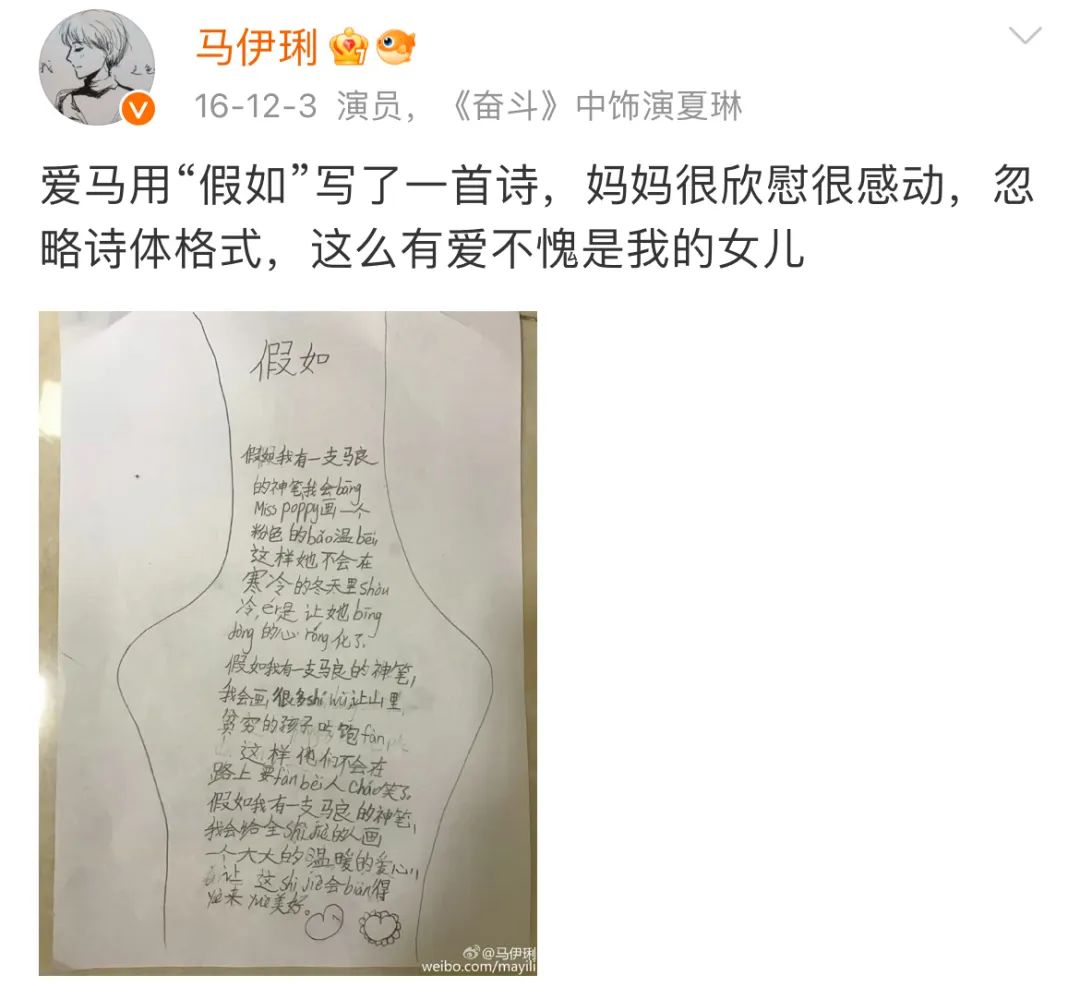 马伊琍
16-12-3 演员，《奋斗》中饰演夏琳
爱马用“假如”写了一首诗，妈妈很欣慰很感动，忽
略诗体格式，这么有爱不愧是我的女儿
假如
假如我有一支马良
的神笔我会bāng
Miss poppy画一个
粉色的bǎo温bēi
这样她不会在
寒冷的冬天里shòu
冷，ér是让她bīng
dòng的心róng化了
假如我有一支马良的神笔，
我会画很多shí wù让山里
贫穷的孩子吃饱fàn
这样他们不会在
路上要fàn bèi人cháo笑了
假如我有一支马良的神笔，
我会给全shì jiè的人画
一个大大的温暖的爱心
让这shì jiè会biàn得
yuè来yuè美好。
@马伊琍
weibo.com/mayili